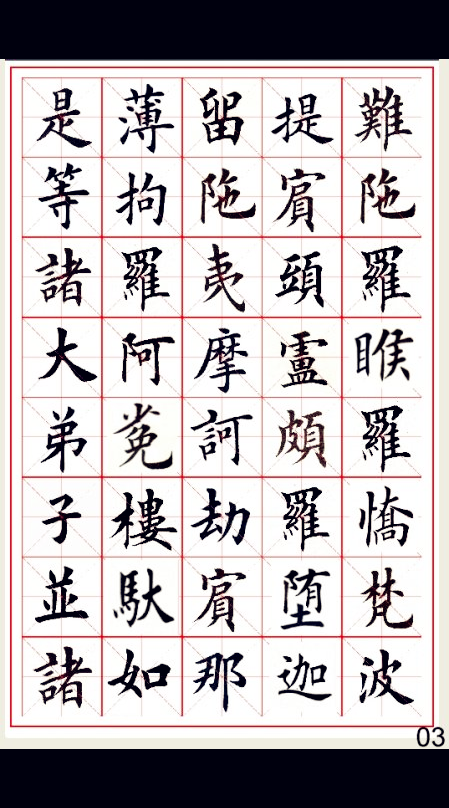 難陁羅睺羅憍梵波
提賔頭盧頗羅堕迦
留陁夷摩訶劫賔那
薄拘羅阿㝹樓馱如
是等諸大弟子並諸
03